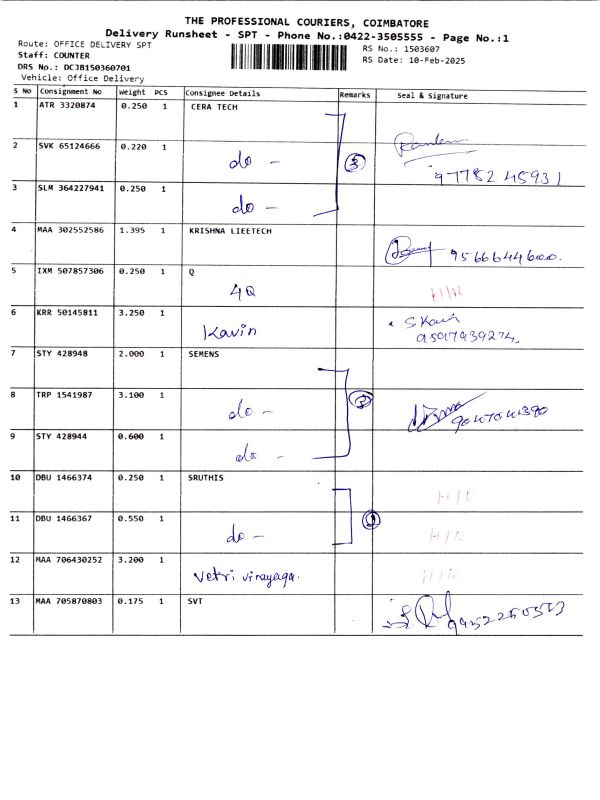 THE PROFESSIONAL COURIERS, COIMBATORE
Delivery Runsheet - SPT - Phone No.:0422-3505555 - Page No.:1
Route: OFFICE DELIVERY SPT
Staff: COUNTER
DRS No.: DCJB150360701
Vehicle: Office Delivery
RS No.: 1503607
RS Date: 10-Feb-2025
S No Consignment No Weight PCS Consignee Details Remarks Seal & Signature
1 ATR 3320874 0.250 1 CERA TECH
2 SVK 65124666 0.220 1 do - 3
97782 45931
3 SLM 364227941 0.250 1 do -
4 MAA 302552586 1.395 1 KRISHNA LIEETECH
5 IXM 507857306 0.250 1 Q
4Q
6 KRR 50145811 3.250 1 Kavin
7 STY 428948 2.000 1 SEMENS
8 TRP 1541987 3.100 1 do -
9 STY 428944 0.600 1 do -
10 DBU 1466374 0.250 1 SRUTHIS
11 DBU 1466367 0.550 1 do -
12 MAA 706430252 3.200 1 Vetri Vinayaga.
13 MAA 705870803 0.175 1 SVT